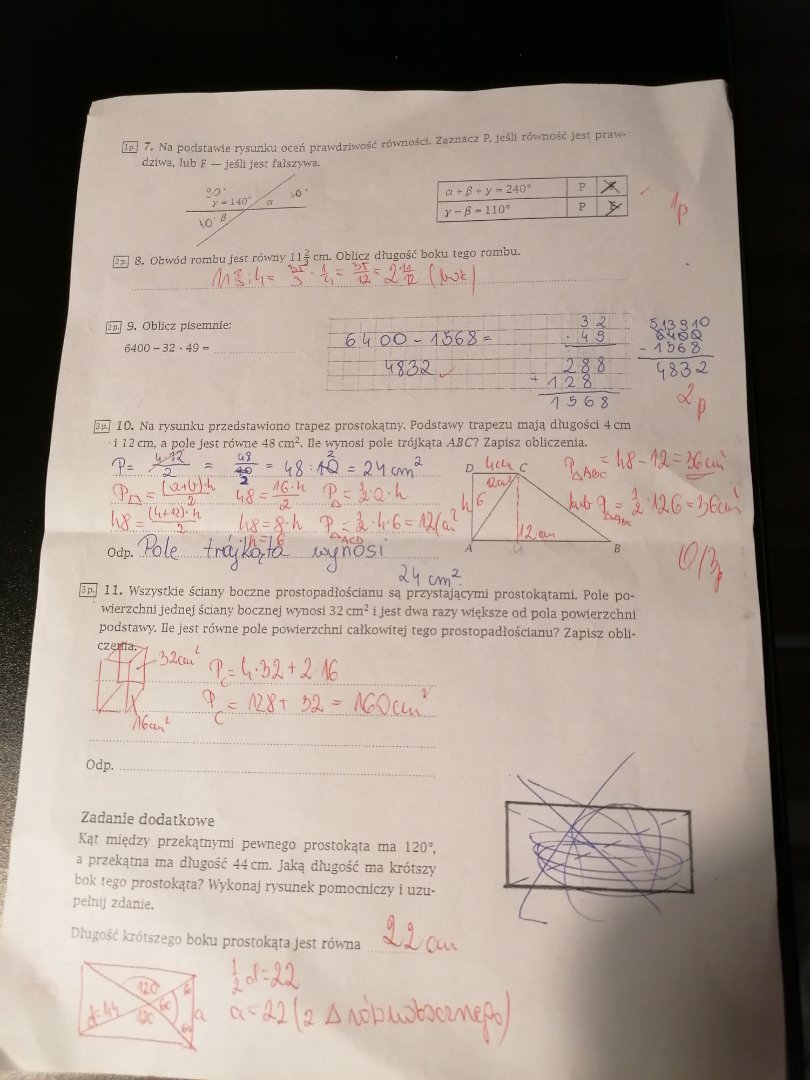 1p. 7. Na podstawie rysunku oceń prawdziwość równości. Zaznacz P, jeśli równość jest praw-
dziwa, lub F — jeśli jest fałszywa.
γ = 140° α
β
α + β + γ = 240° P
γ − β = 110° P
1p
2p. 8. Obwód rombu jest równy 11 2/3 cm. Oblicz długość boku tego rombu.
11 2/3 : 4 = 35/3 · 1/4 = 35/12 = 2 11/12 (bok)
2p. 9. Oblicz pisemnie:
6400 − 32 · 49 =
6400 − 1568 =
4832
32
· 49
288
+ 128
1568
6400
− 1568
4832
2p
3p. 10. Na rysunku przedstawiono trapez prostokątny. Podstawy trapezu mają długości 4 cm
i 12 cm, a pole jest równe 48 cm². Ile wynosi pole trójkąta ABC? Zapisz obliczenia.
P = 4·12/2 = 48/2 = 48 : 2 = 24 cm²
P = (a+b)·h/2 48 = 16·h/2 P = 1/2·a·h
48 = (4+12)·h/2 48 = 8·h P△ACD = 1/2·4·6 = 12 cm²
h = 6
D 4cm C
12cm²
h 6
12cm
A B
P△ABC = 48 − 12 = 36 cm²
lub P△ABC = 1/2·12·6 = 36 cm²
0/3p
Odp. Pole trójkąta wynosi
24 cm².
3p. 11. Wszystkie ściany boczne prostopadłościanu są przystającymi prostokątami. Pole po-
wierzchni jednej ściany bocznej wynosi 32 cm² i jest dwa razy większe od pola powierzchni
podstawy. Ile jest równe pole powierzchni całkowitej tego prostopadłościanu? Zapisz obli-
czenia.
32cm²
Pc = 4·32 + 2·16
Pc = 128 + 32 = 160 cm²
16cm²
Odp.
Zadanie dodatkowe
Kąt między przekątnymi pewnego prostokąta ma 120°,
a przekątna ma długość 44 cm. Jaką długość ma krótszy
bok tego prostokąta? Wykonaj rysunek pomocniczy i uzu-
pełnij zdanie.
Długość krótszego boku prostokąta jest równa 22 cm
120
d=44 60 a
120
1/2 d = 22
a = 22 (z △ równobocznego)